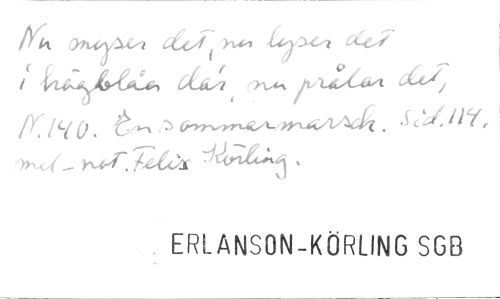 Nu myser det, nu lyser det
i högblåa dar, nu prålar det,
N.140. En sommarmarsch. Sid. 114.
mel-not. Felix Körling.
ERLANSON-KÖRLING SGB